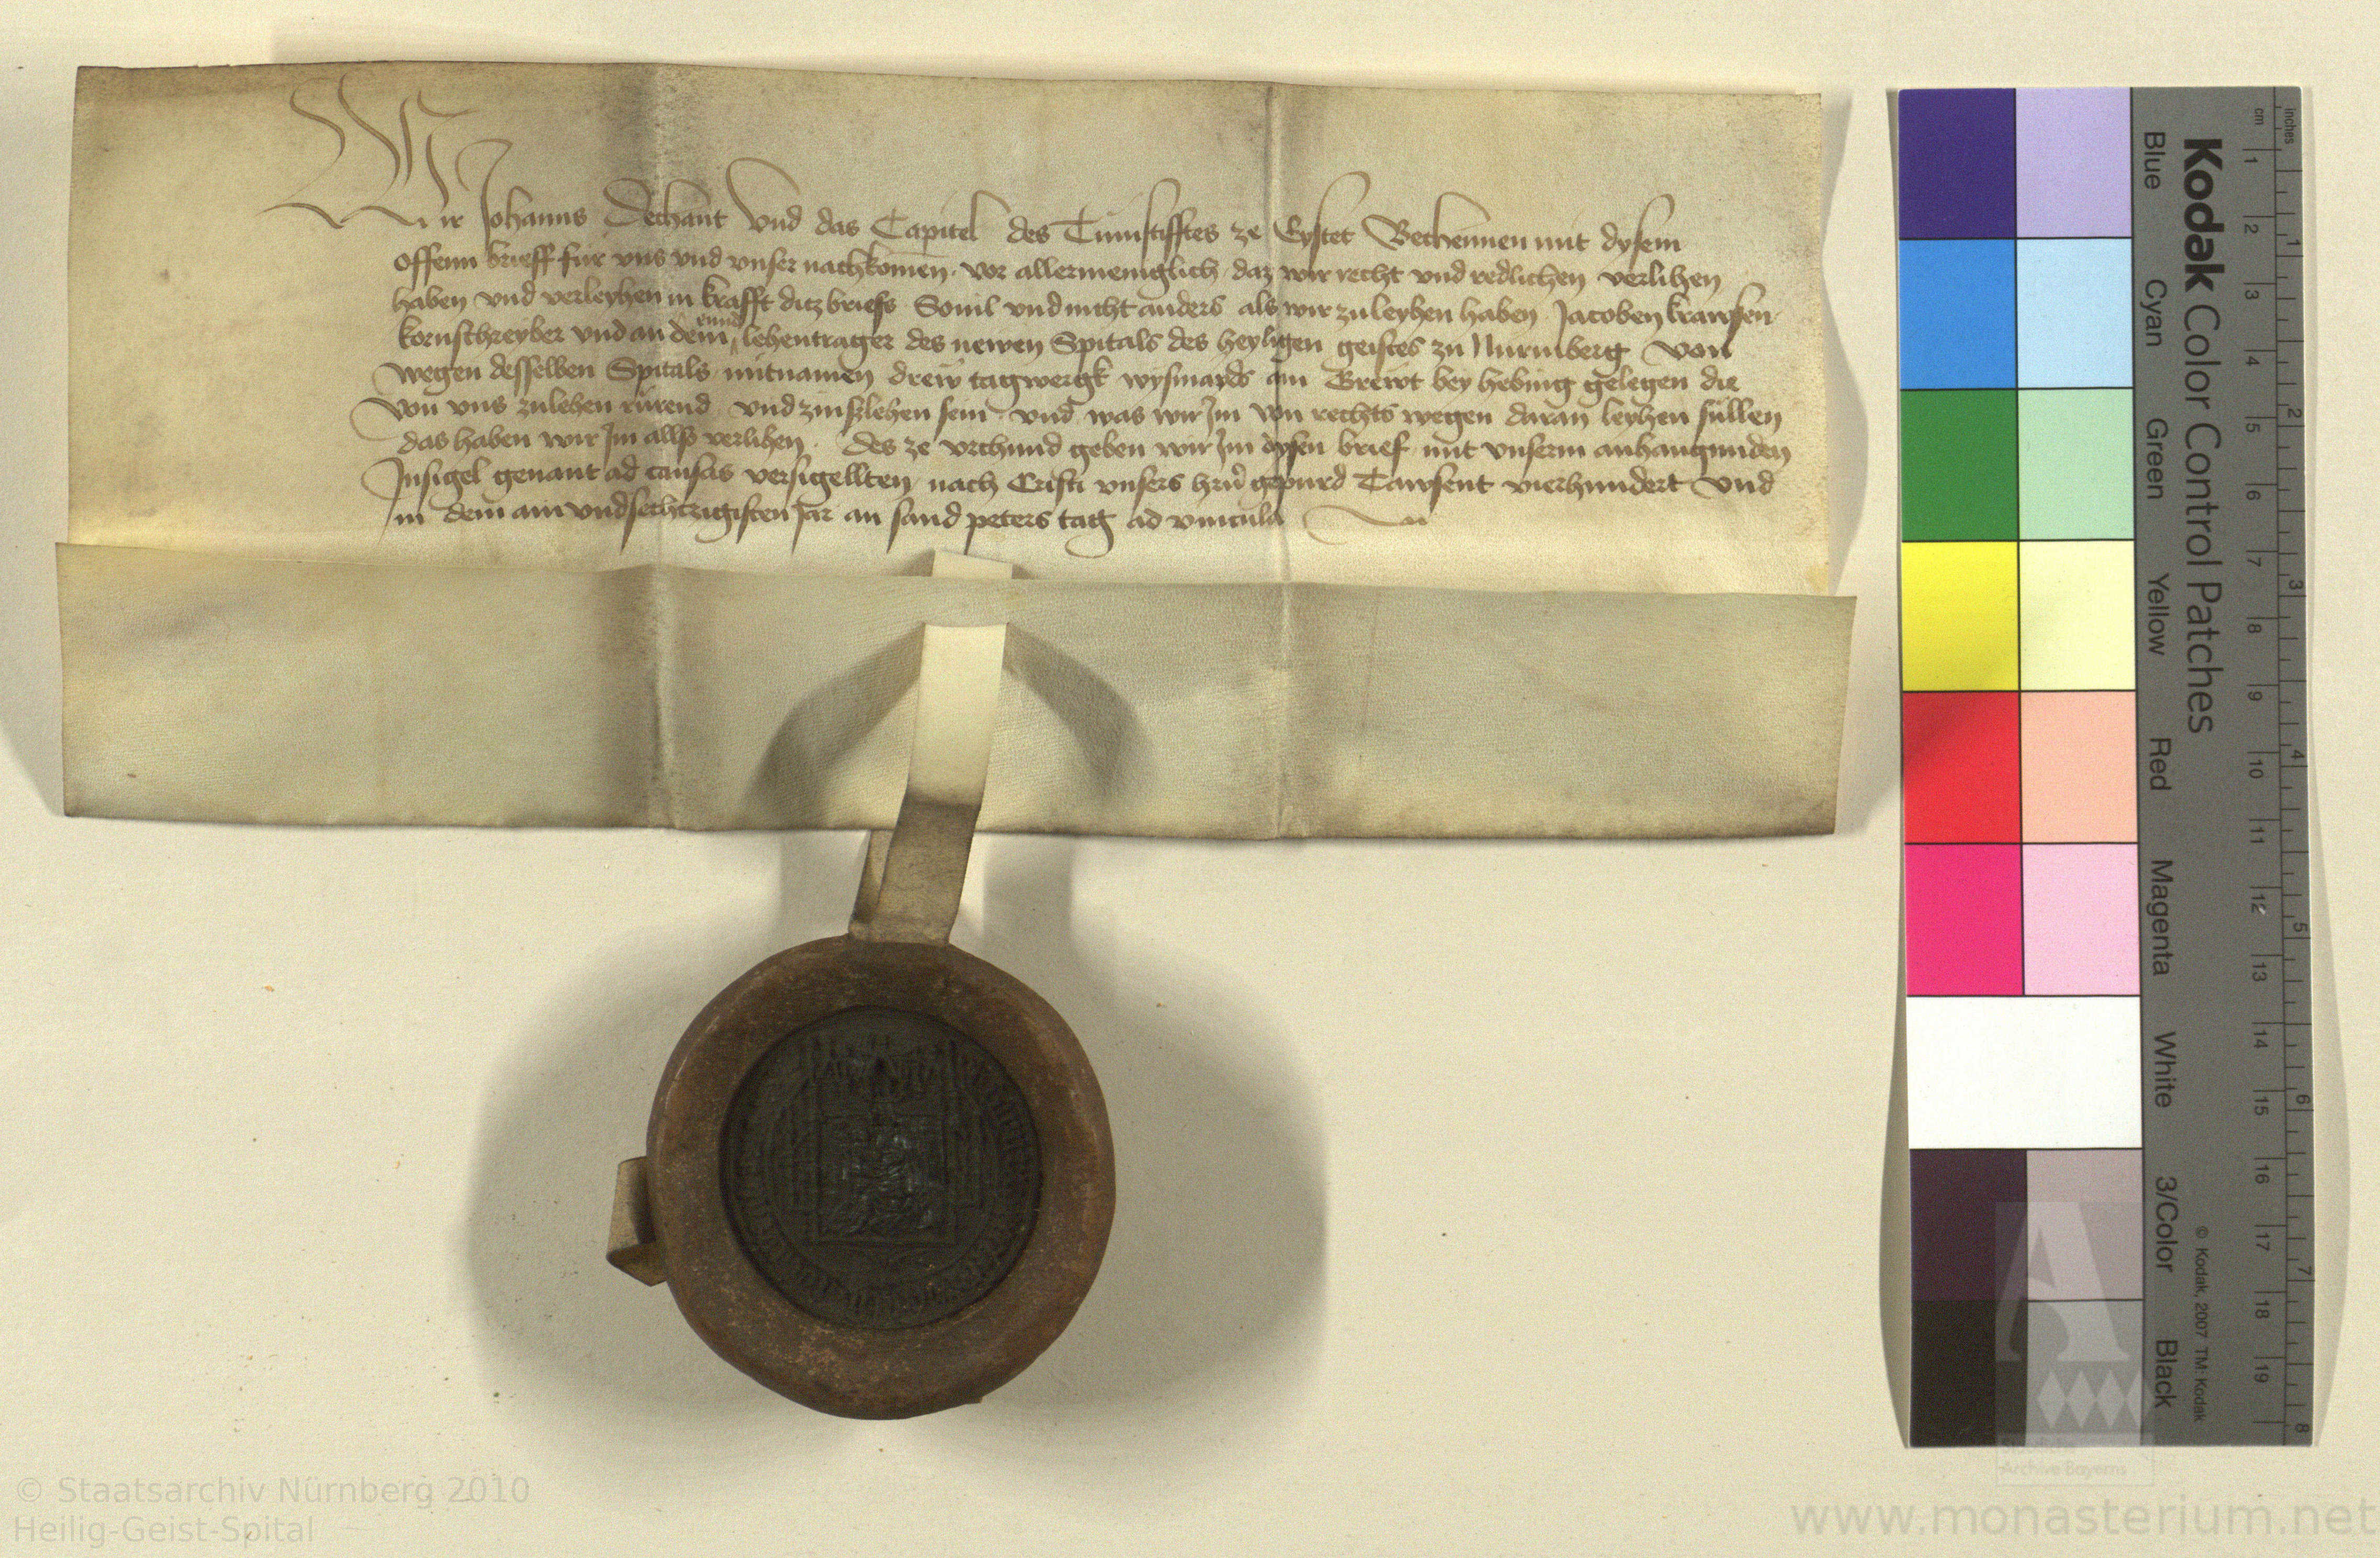 Wir Johanns Dechant vnd das Capitel des Tumstifftes ze Eystet Bechennen mit dysem
offenn brieff für vns vnd vnser nachkomen vor allermeniglich daz wir recht vnd redlichen verlihen
haben vnd verleyhen in krafft ditz briefs Souil vnd nicht anders als wir zuleyhen haben Jacoben krawsen
kornschreyber vnd an dem lehentrager des newen Spitals des heyligen geistes zu Nurmberg von
wegen desselben Spitals mitnamen drew tagwergk wysmayds am Brewt bey hebing gelegen die
von vns zulehen rürend vnd zinszlehen sein vnd was wir Jm von rechts wegen daran leyhen süllen
das haben wir Jm allss verlihen des ze vrchund geben wir Jm dysen brief mit vnserm anhangunden
Jnsigel genant ad causas versigellten nach Cristi vnsers hrn gepurd Tawsent vierhundert vnd
in dem ain vndsechtzigisten Jar an sand peters tag ad vincula
Kodak Color Control Patches
Blue Cyan Green Yellow Red Magenta White 3/Color Black
© Kodak, 2007 TM: Kodak
cm 1 2 3 4 5 6 7 8 9 10 11 12 13 14 15 16 17 18 19
inches 1 2 3 4 5 6 7 8
Archive Bayerns
© Staatsarchiv Nürnberg 2010
Heilig-Geist-Spital
www.monasterium.net